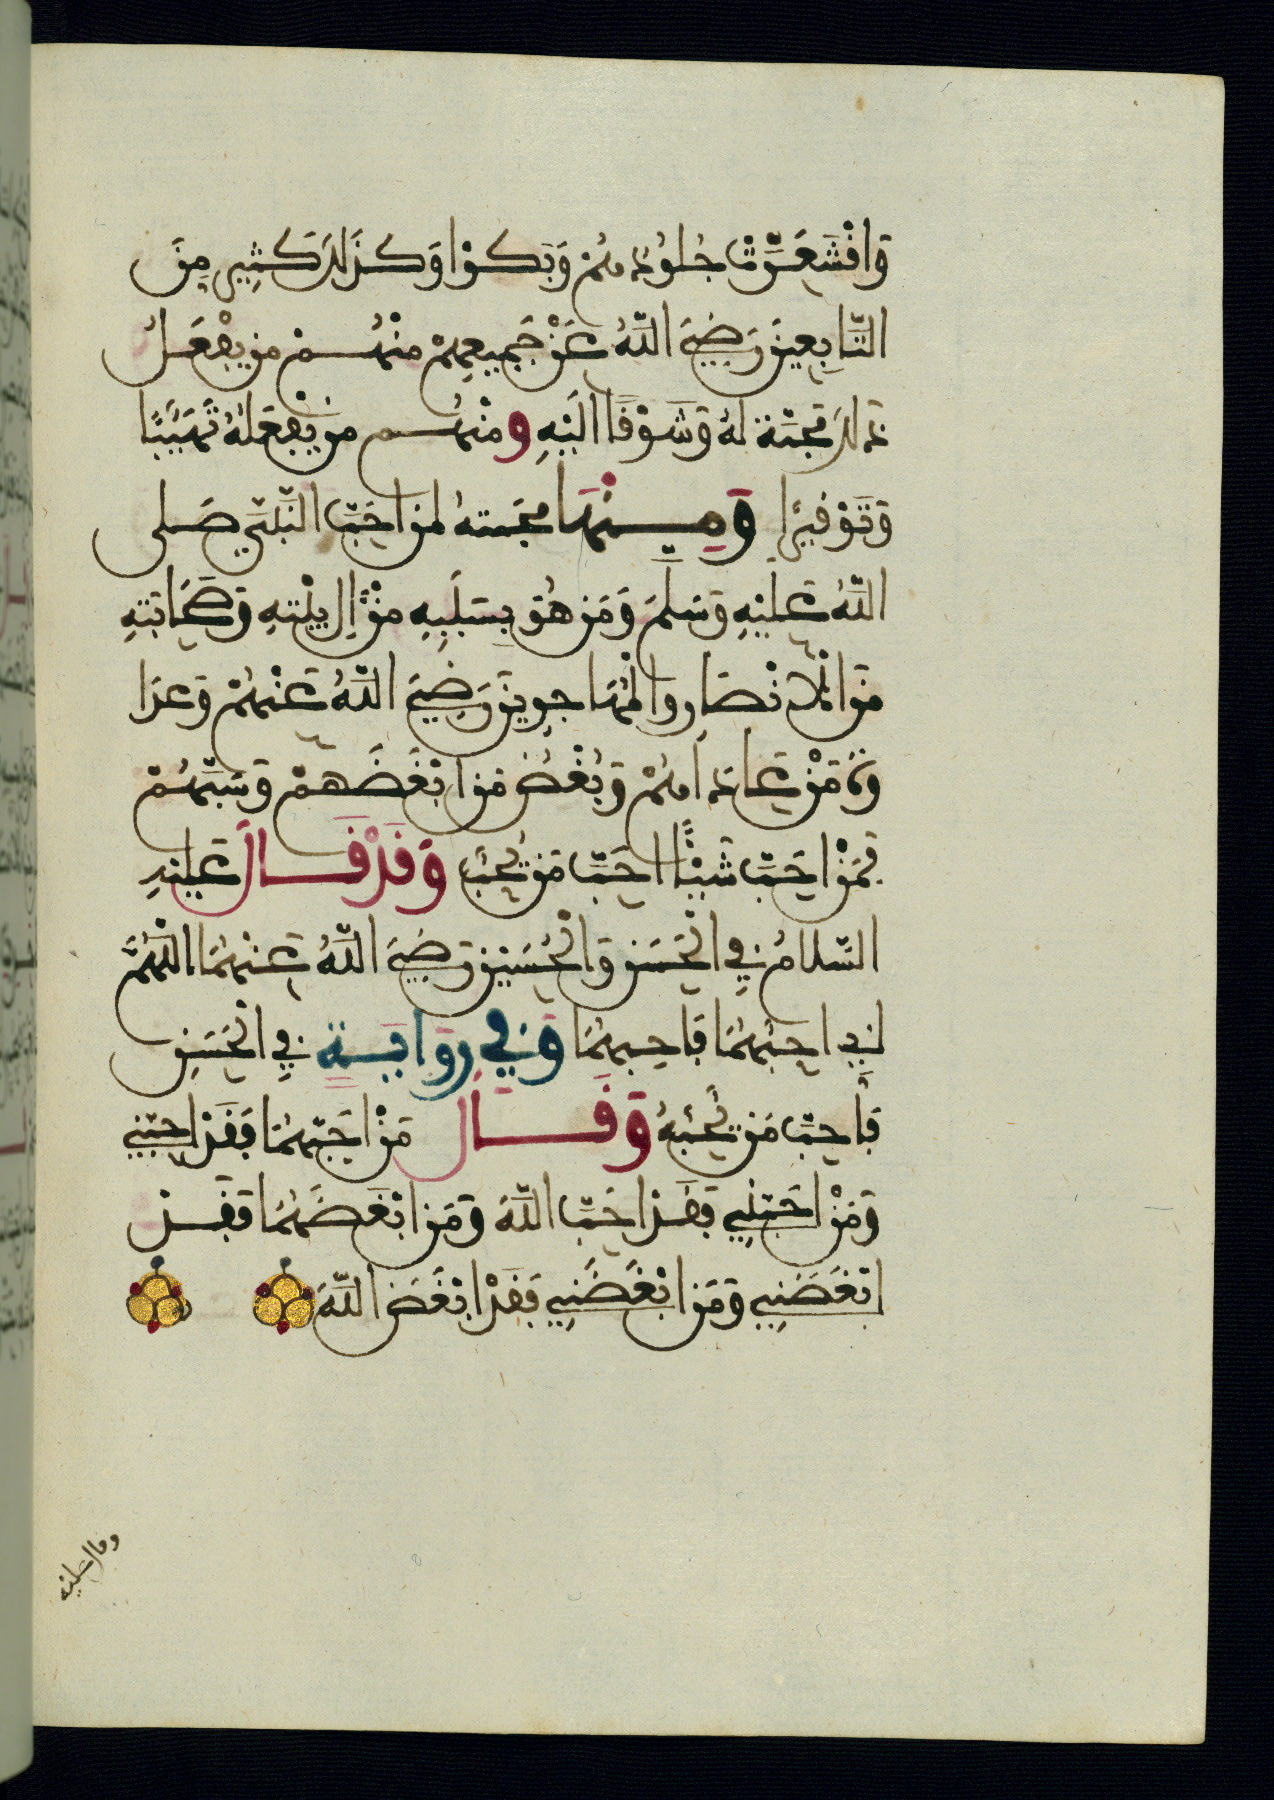 وَاقْشَعَرَّتْ جُلُودُهُمْ وَبَكَوْا وَكَذَلِكَ كَثِيرٌ مِنَ
التَّابِعِينَ رَضِيَ اللَّهُ عَنْ جَمِيعِهِمْ مِنْهُمْ مَن يَفْعَلُ
ذَلِكَ مَحَبَّةً لَهُ وَشَوْقًا إِلَيْهِ وَمِنْهُم مَن يَفْعَلُهُ تَهَيُّبًا
وَتَوْقِيرًا وَمِنْهَا مَحَبَّتُهُ لِمَنْ أَحَبَّ النَّبِيَّ صَلَّى
اللَّهُ عَلَيْهِ وَسَلَّمَ وَمَنْ هُوَ بِسَبَبِهِ مِنْ آلِ بَيْتِهِ وَصَحَابَتِهِ
مِنَ الْأَنْصَارِ وَالْمُهَاجِرِينَ رَضِيَ اللَّهُ عَنْهُمْ وَعَدَا
وَةُ مَنْ عَادَاهُمْ وَبُغْضُ مَنْ أَبْغَضَهُمْ وَسَبَّهُمْ
فَمَنْ أَحَبَّ شَيْئًا أَحَبَّ مَنْ يُحِبُّ وَقَدْ قَالَ عَلَيْهِ
السَّلَامُ فِي الْحَسَنِ وَالْحُسَيْنِ رَضِيَ اللَّهُ عَنْهُمَا اللَّهُمَّ
إِنِّي أُحِبُّهُمَا فَأَحِبَّهُمَا وَفِي رِوَايَةٍ فِي الْحَسَنِ
فَأَحِبَّ مَنْ يُحِبُّهُ وَقَالَ مَنْ أَحَبَّهُمَا فَقَدْ أَحَبَّنِي
وَمَنْ أَحَبَّنِي فَقَدْ أَحَبَّ اللَّهَ وَمَنْ أَبْغَضَهُمَا فَقَدْ
أَبْغَضَنِي وَمَنْ أَبْغَضَنِي فَقَدْ أَبْغَضَ اللَّهَ
وقال عليه